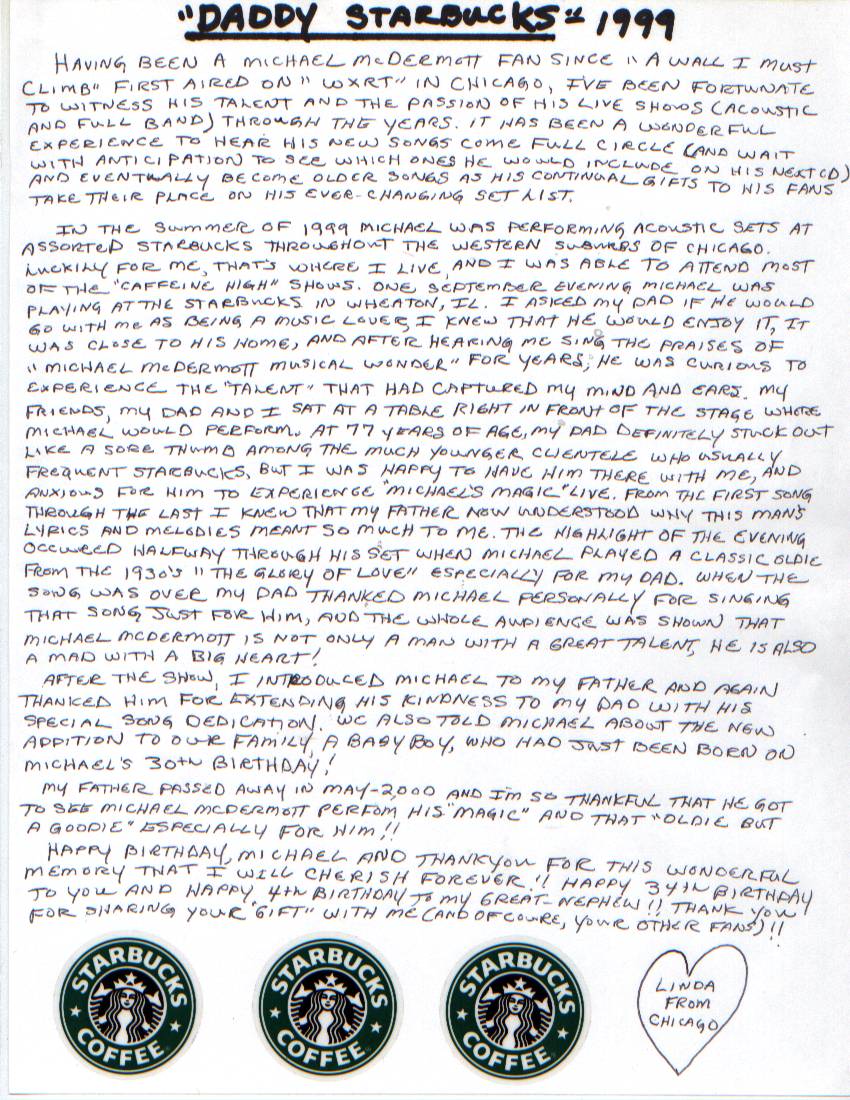 "DADDY STARBUCKS" 1999
HAVING BEEN A MICHAEL McDERMOTT FAN SINCE "A WALL I MUST
CLIMB" FIRST AIRED ON "WXRT" IN CHICAGO, I'VE BEEN FORTUNATE
TO WITNESS HIS TALENT AND THE PASSION OF HIS LIVE SHOWS (ACOUSTIC
AND FULL BAND) THROUGH THE YEARS. IT HAS BEEN A WONDERFUL
EXPERIENCE TO HEAR HIS NEW SONGS COME FULL CIRCLE (AND WAIT
WITH ANTICIPATION TO SEE WHICH ONES HE WOULD INCLUDE ON HIS NEXT CD)
AND EVENTUALLY BECOME OLDER SONGS AS HIS CONTINUAL GIFTS TO HIS FANS
TAKE THEIR PLACE ON HIS EVER-CHANGING SET LIST.
IN THE SUMMER OF 1999 MICHAEL WAS PERFORMING ACOUSTIC SETS AT
ASSORTED STARBUCKS THROUGHOUT THE WESTERN SUBURBS OF CHICAGO.
LUCKILY FOR ME, THAT'S WHERE I LIVE, AND I WAS ABLE TO ATTEND MOST
OF THE "CAFFEINE HIGH" SHOWS. ONE SEPTEMBER EVENING MICHAEL WAS
PLAYING AT THE STARBUCKS IN WHEATON, IL. I ASKED MY DAD IF HE WOULD
GO WITH ME AS BEING A MUSIC LOVER, I KNEW THAT HE WOULD ENJOY IT, IT
WAS CLOSE TO HIS HOME, AND AFTER HEARING ME SING THE PRAISES OF
"MICHAEL McDERMOTT MUSICAL WONDER" FOR YEARS, HE WAS CURIOUS TO
EXPERIENCE THE "TALENT" THAT HAD CAPTURED MY MIND AND EARS. MY
FRIENDS, MY DAD AND I SAT AT A TABLE RIGHT IN FRONT OF THE STAGE WHERE
MICHAEL WOULD PERFORM. AT 77 YEARS OF AGE, MY DAD DEFINITELY STUCK OUT
LIKE A SORE THUMB AMONG THE MUCH YOUNGER CLIENTELE WHO USUALLY
FREQUENT STARBUCKS, BUT I WAS HAPPY TO HAVE HIM THERE WITH ME, AND
ANXIOUS FOR HIM TO EXPERIENCE "MICHAEL'S MAGIC" LIVE. FROM THE FIRST SONG
THROUGH THE LAST I KNEW THAT MY FATHER NOW UNDERSTOOD WHY THIS MAN'S
LYRICS AND MELODIES MEANT SO MUCH TO ME. THE HIGHLIGHT OF THE EVENING
OCCURED HALFWAY THROUGH HIS SET WHEN MICHAEL PLAYED A CLASSIC OLDIE
FROM THE 1930'S "THE GLORY OF LOVE" ESPECIALLY FOR MY DAD. WHEN THE
SONG WAS OVER MY DAD THANKED MICHAEL PERSONALLY FOR SINGING
THAT SONG JUST FOR HIM, AND THE WHOLE AUDIENCE WAS SHOWN THAT
MICHAEL McDERMOTT IS NOT ONLY A MAN WITH A GREAT TALENT, HE IS ALSO
A MAD WITH A BIG HEART!
AFTER THE SHOW, I INTRODUCED MICHAEL TO MY FATHER AND AGAIN
THANKED HIM FOR EXTENDING HIS KINDNESS TO MY DAD WITH HIS
SPECIAL SONG DEDICATION. WE ALSO TOLD MICHAEL ABOUT THE NEW
ADDITION TO OUR FAMILY, A BABY BOY, WHO HAD JUST BEEN BORN ON
MICHAEL'S 30TH BIRTHDAY!
MY FATHER PASSED AWAY IN MAY-2,000 AND I'M SO THANKFUL THAT HE GOT
TO SEE MICHAEL McDERMOTT PERFOM HIS "MAGIC" AND THAT "OLDIE BUT
A GOODIE" ESPECIALLY FOR HIM!!
HAPPY BIRTHDAY, MICHAEL AND THANKYOU FOR THIS WONDERFUL
MEMORY THAT I WILL CHERISH FOREVER!! HAPPY 34TH BIRTHDAY
TO YOU AND HAPPY 4TH BIRTHDAY TO MY GREAT-NEPHEW!! THANK YOU
FOR SHARING YOUR "GIFT" WITH ME (AND OF COURE, YOUR OTHER FANS)!!
STARBUCKS COFFEE
STARBUCKS COFFEE
STARBUCKS COFFEE
LINDA
FROM
CHICAGO